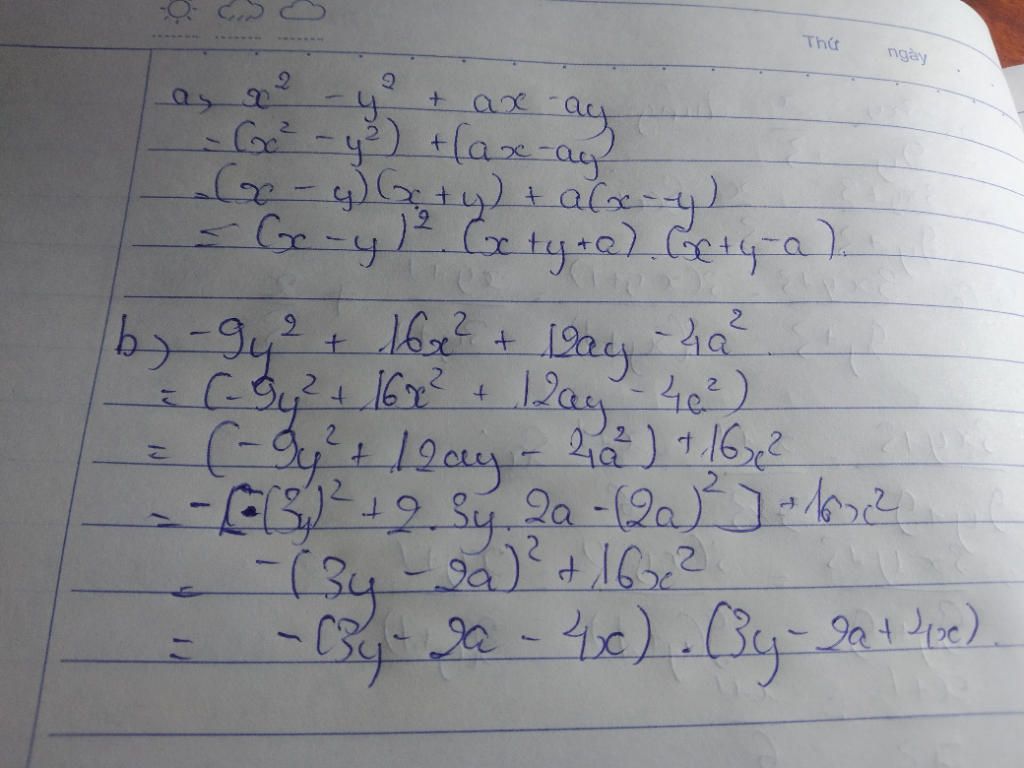 Thứ ngày
a, x² - y² + ax - ay
= (x² - y²) + (ax - ay)
= (x - y)(x + y) + a(x - y)
= (x - y)² . (x + y + a) . (x + y - a).
b) -9y² + 16x² + 12ay - 4a²
= (-9y² + 16x² + 12ay - 4a²)
= (-9y² + 12ay - 4a²) + 16x²
= -[-(3y)² + 2.3y.2a - (2a)²] + 16x²
= -(3y - 2a)² + 16x²
= -(3y - 2a - 4x) . (3y - 2a + 4x).